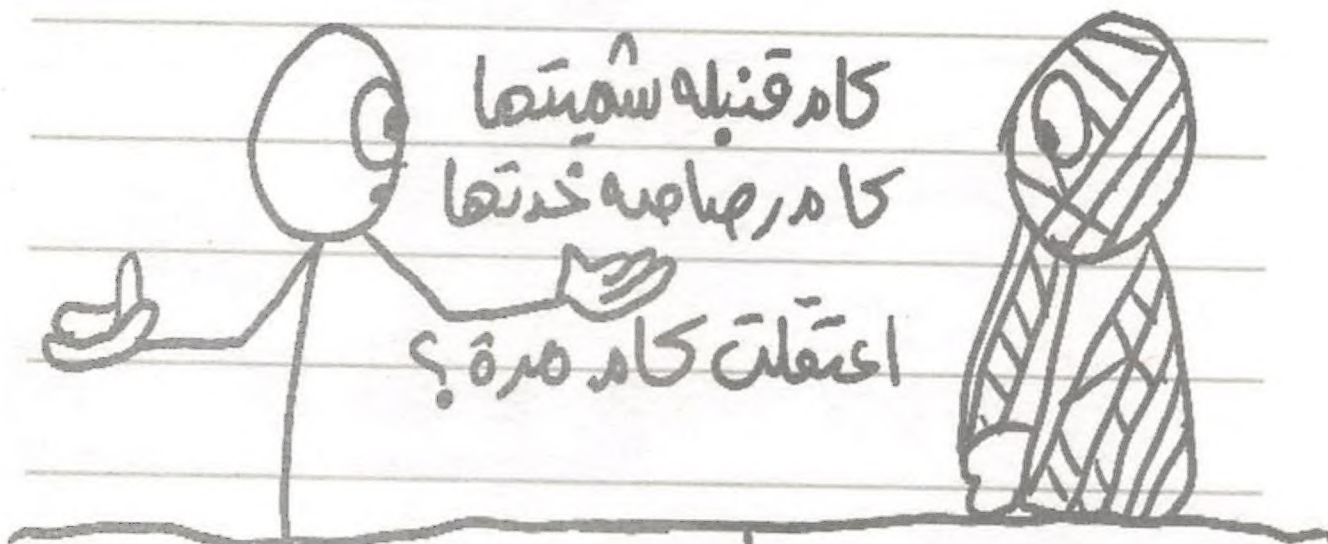 كام قنبله شميتها
كام رصاصه خدتها
اعتقلت كام مرة؟